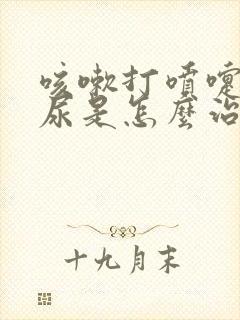 咳嗽打噴嚏
尿是怎麼治
十九月末